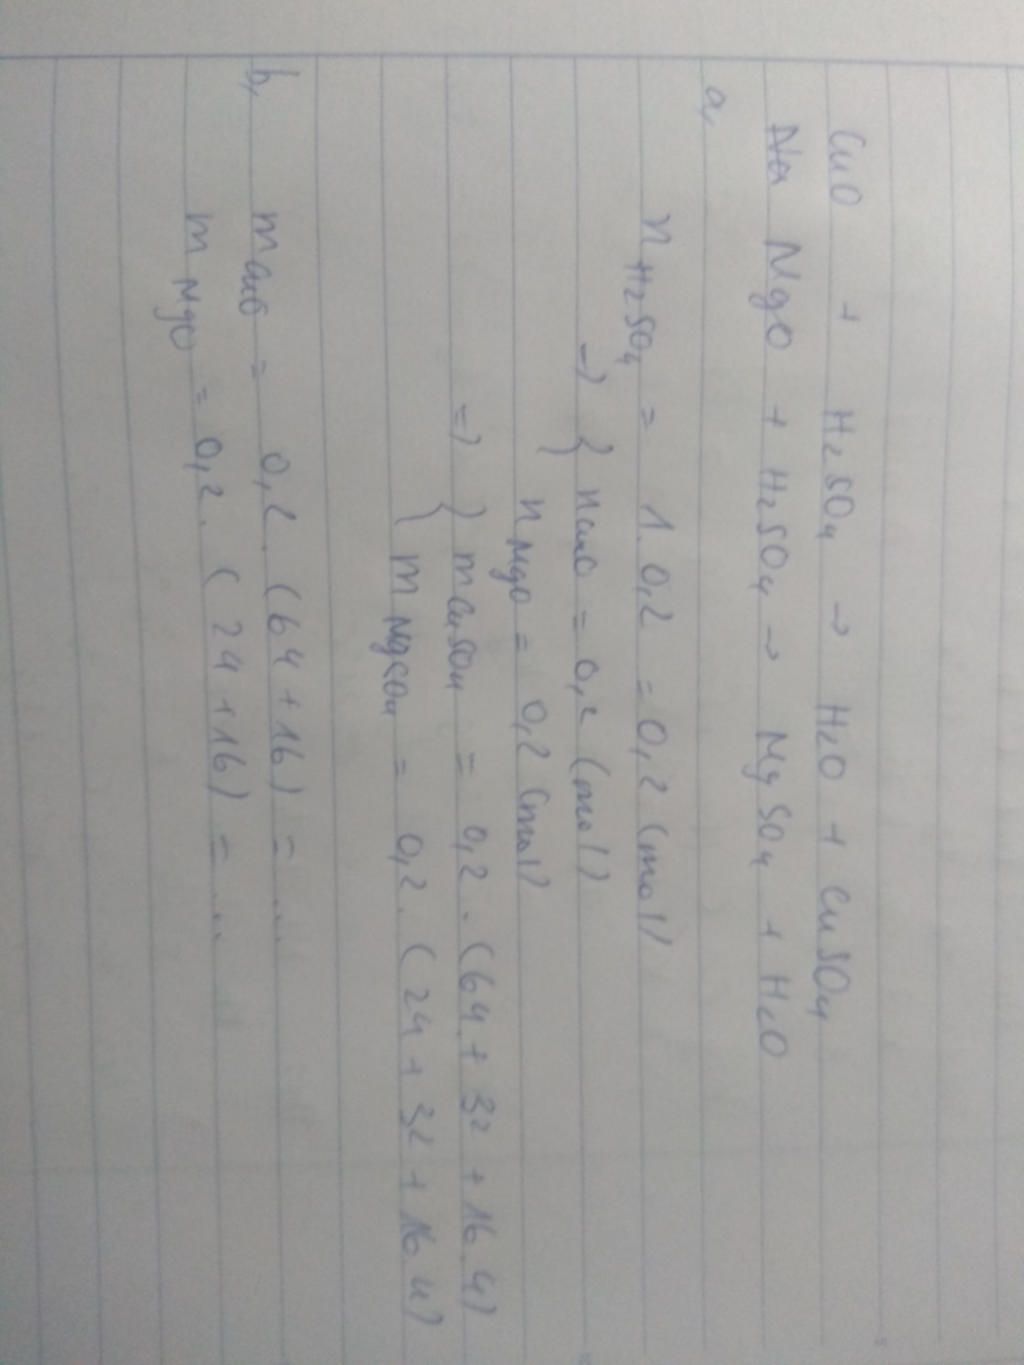 CuO + H2SO4 → H2O + CuSO4
Na MgO + H2SO4 → MgSO4 + H2O
a,
nH2SO4 = 1.0,2 = 0,2 (mol)
=) { nCuO = 0,2 (mol)
nMgO = 0,2 (mol)
=) { mCuSO4 = 0,2.(64+32+16.4)
{ mMgSO4 = 0,2.(24+32+16.4)
b, mCuO = 0,2.(64+16) = ...
mMgO = 0,2.(24+16) = ...